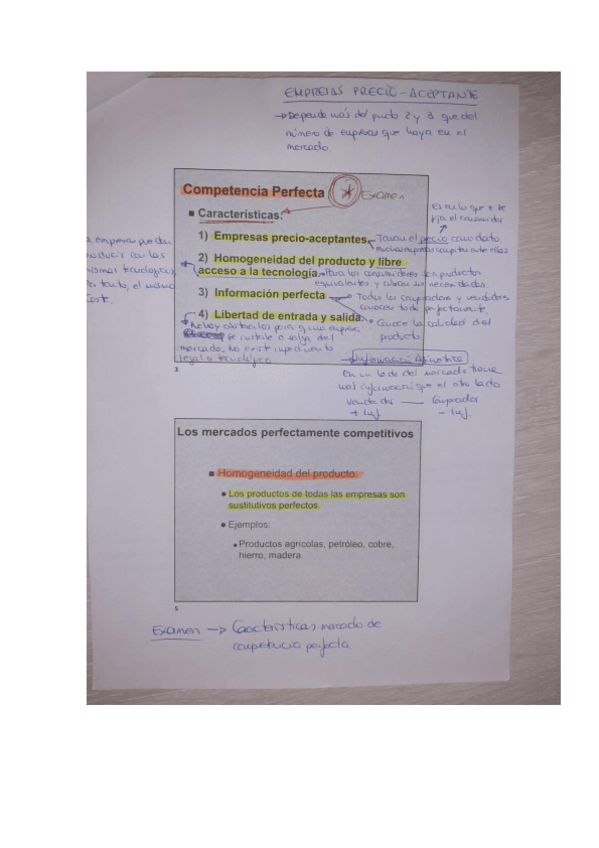 EMPRESAS PRECIO-ACEPTANTE
→ Depende más del punto 2 y 3 que del
número de empresas que haya en el
mercado.
Competencia Perfecta * Examen
Características:
1) Empresas precio-aceptantes
Toman el precio como dato
Es en lo que + se
fija el consumidor
2) Homogeneidad del producto y libre
acceso a la tecnología.
Para los consumidores son productos
equivalentes y cubren sus necesidades.
empresas pueden
producir con las
mismas tecnologías,
por tanto, el mismo
coste.
3) Información perfecta
Todos los compradores y vendedores
conocen todo perfectamente
4) Libertad de entrada y salida.
Conoce la calidad del
producto
No hay obstáculos para q una empresa
se instale o salga del
mercado. No existe impedimento
legal o tecnológico
→ Información Asimétrica
En un lado del mercado tiene
más información que el otro lado
vendedor — Comprador
+ inf. - inf.
3
Los mercados perfectamente competitivos
Homogeneidad del producto:
Los productos de todas las empresas son
sustitutivos perfectos.
Ejemplos:
Productos agrícolas, petróleo, cobre,
hierro, madera.
5
Examen → Características mercado de
competencia perfecta.